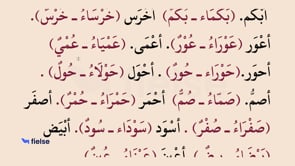 ابْكم. (بَكمَاء ـ بَكمَ) اخرَس (خرْسَاءُ ـ خرْسَ).
أعْوَر (عَوْرَاءُ ـ عُوْرٌ). أعْمَى. (عَمْيَاءُ ـ عُمْيٌ)
أحور. (حَوْرَاء ـ حُورٌ) . أحْوَل (حَوْلَاءُ ـ حُولٌ) .
أصمُّ. (صَمَّاءُ ـ صُمٌّ) أحْمَر (حَمْرَاءُ ـ حُمْرٌ). أصفَر
(صَفْرَاءُ ـ صُفْرٌ) . أسْوَد (سَوْدَاء ـ سُودٌ). أبْيَض
fielse